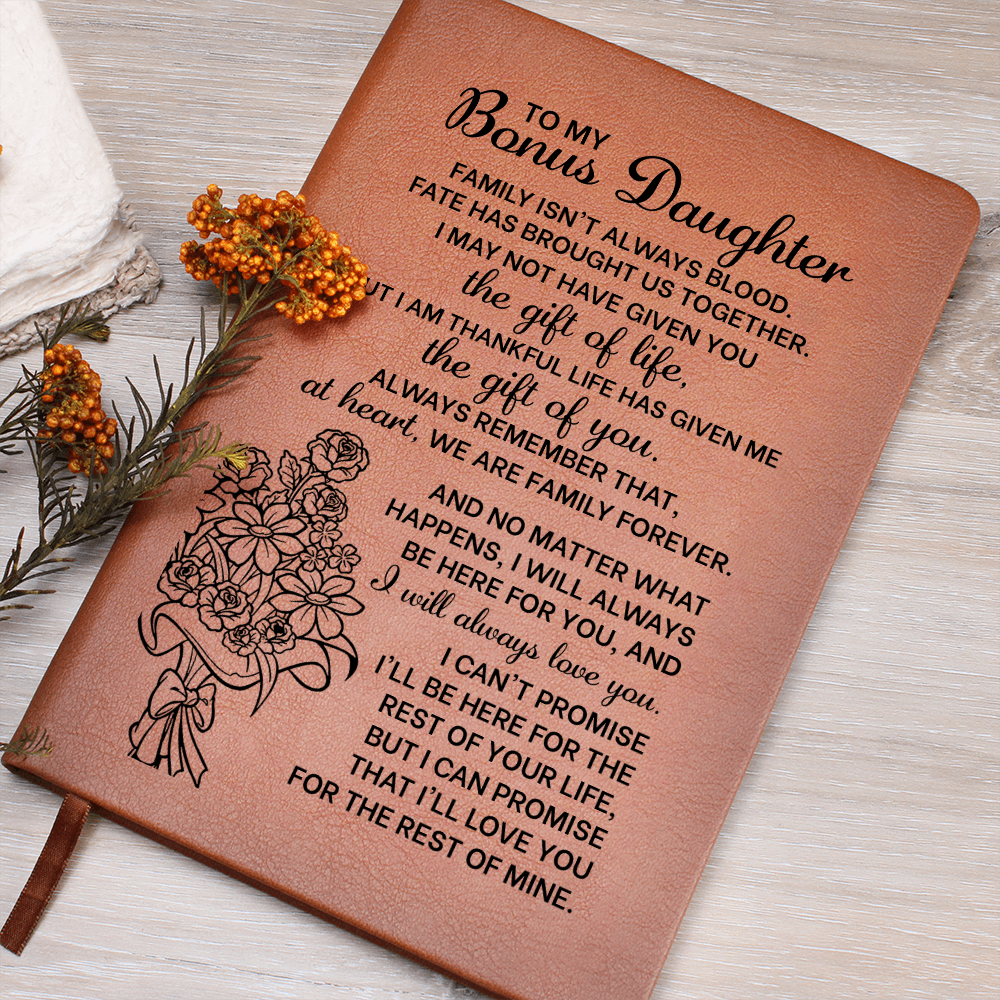 TO MY
Bonus Daughter
FAMILY ISN'T ALWAYS BLOOD.
FATE HAS BROUGHT US TOGETHER.
I MAY NOT HAVE GIVEN YOU
the gift of life,
UT I AM THANKFUL LIFE HAS GIVEN ME
the gift of you.
ALWAYS REMEMBER THAT,
at heart, WE ARE FAMILY FOREVER.
AND NO MATTER WHAT
HAPPENS, I WILL ALWAYS
BE HERE FOR YOU, AND
I will always love you.
I CAN'T PROMISE
I'LL BE HERE FOR THE
REST OF YOUR LIFE,
BUT I CAN PROMISE
THAT I'LL LOVE YOU
FOR THE REST OF MINE.